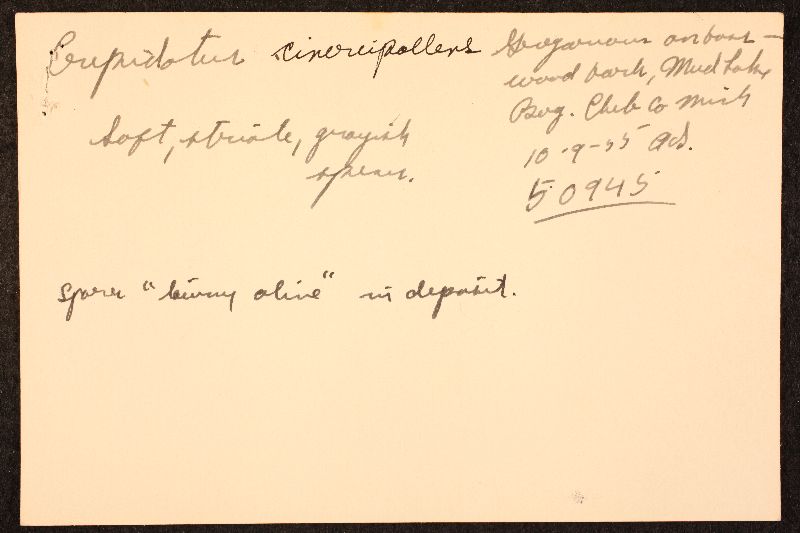 Crepidotus cinereipallens
Gregarious on bass-
wood bark, Mud Lake
Bog. Cheb Co Mich
10-9-55 Ad.
50945
Soft, striate, grayish
spores.
Spores "tawny olive" in deposit.